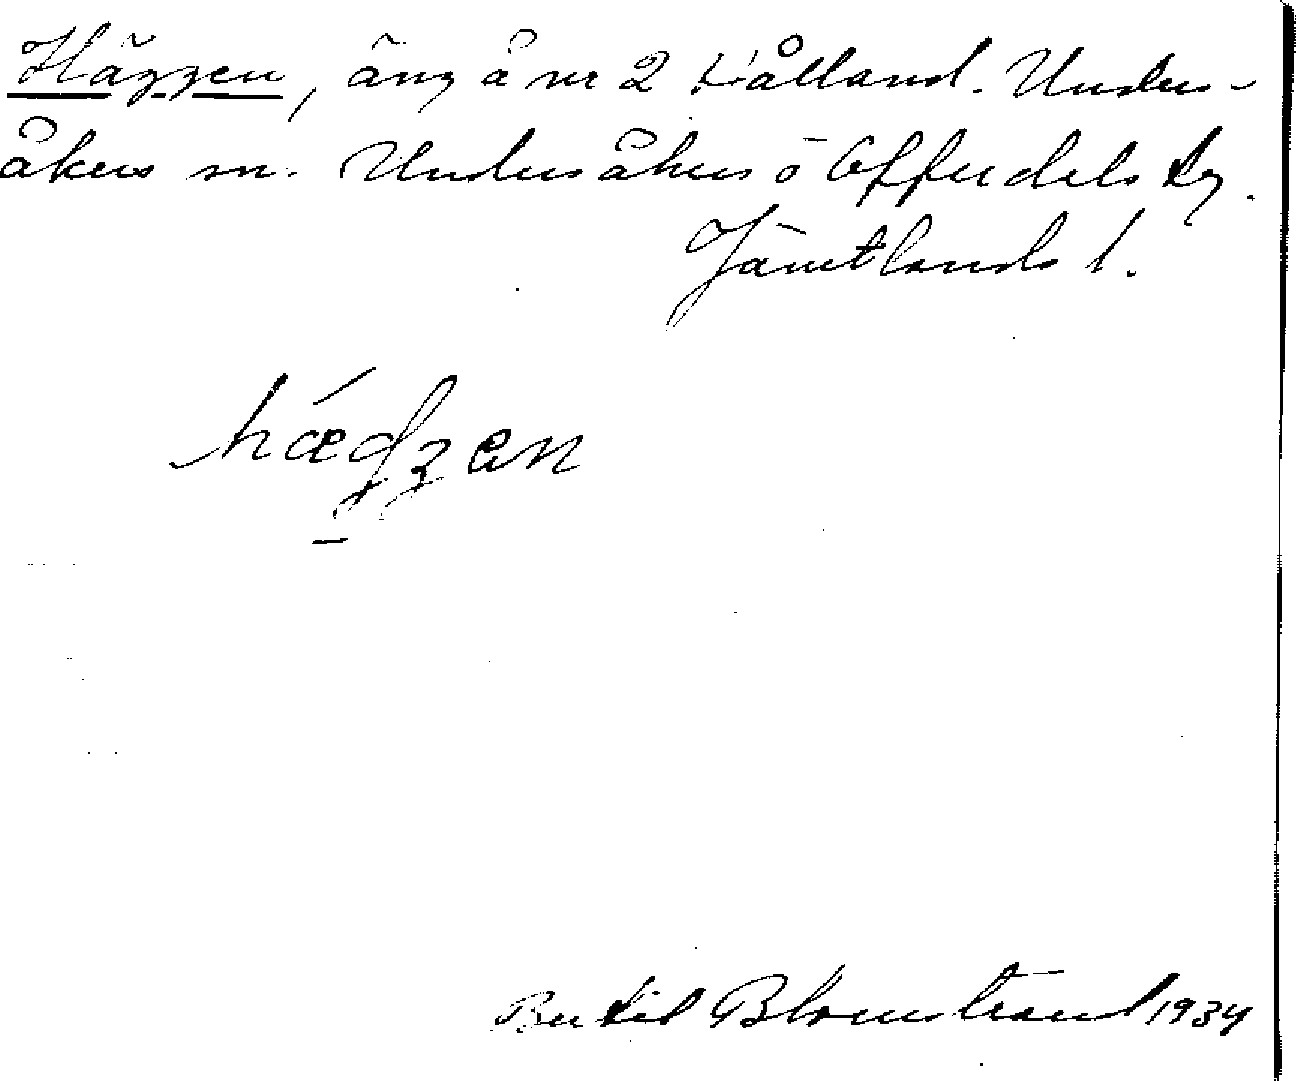 Häggen, äng å nr 2 Hålland. Unders-
åkers sn. Undersåkers o Offerdals tg.
Jämtlands l.
Bertil Blomstrand 1934